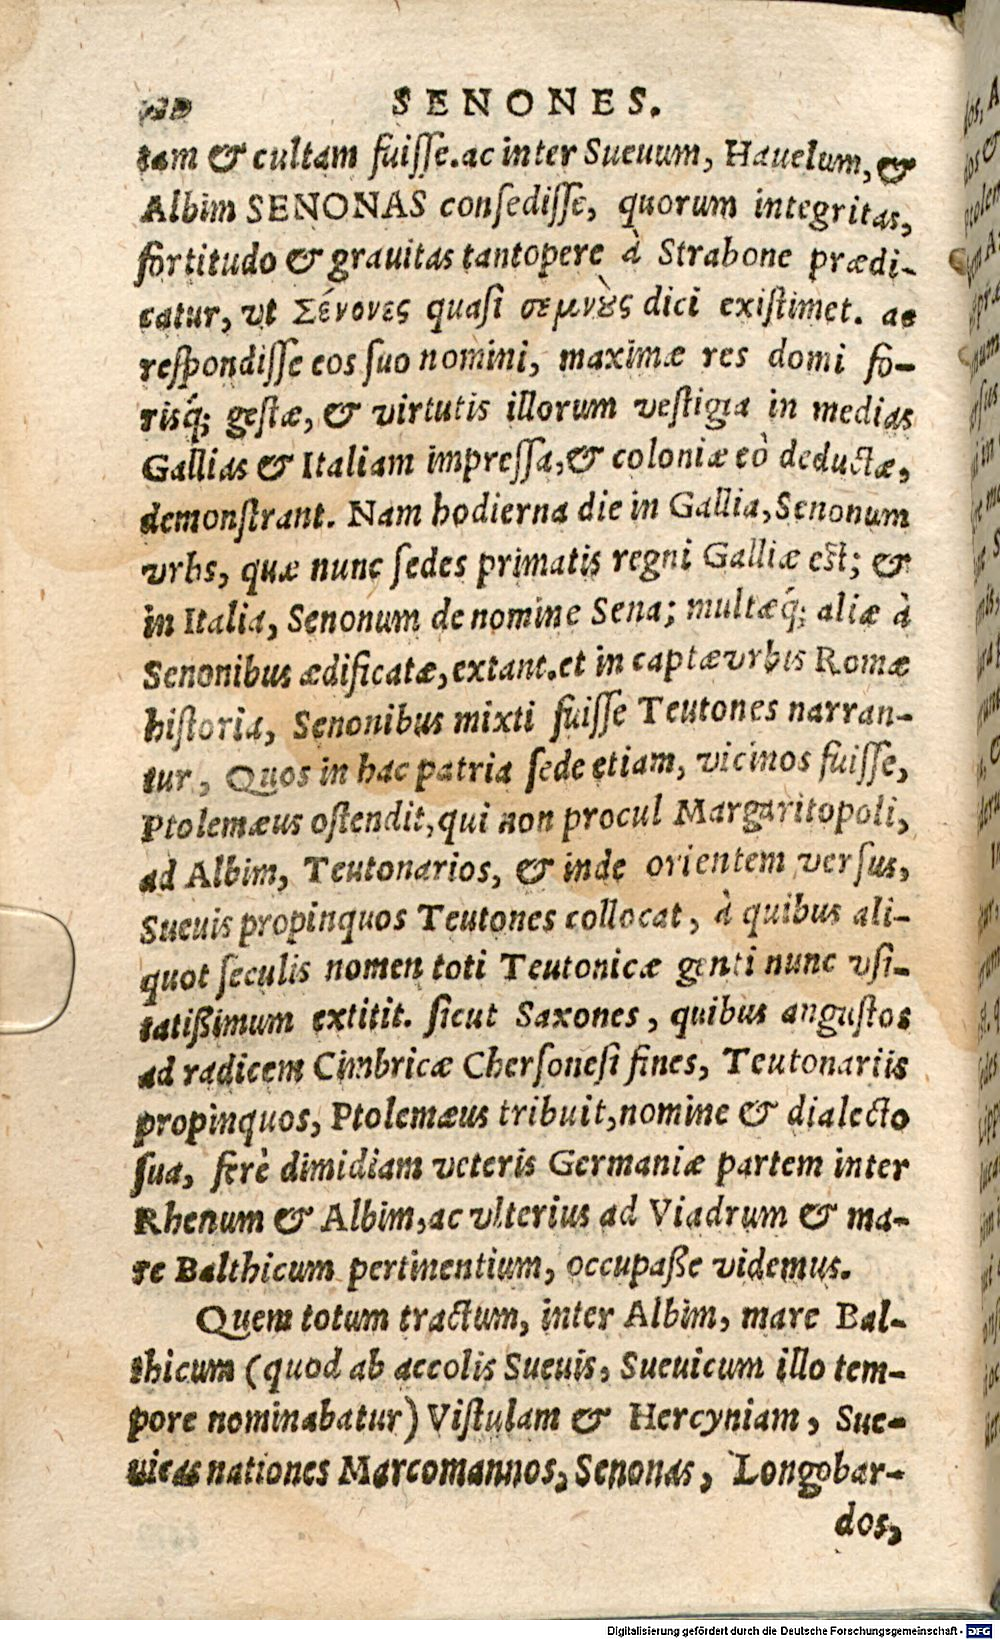 SENONES.
tam & cultam fuiſſe. ac inter Sueuum, Hauelum, &
Albim SENONAS conſediſſe, quorum integritas,
fortitudo & grauitas tantopere à Strabone prædi-
catur, vt Σένονες quaſi σεμνȣ̀ς dici exiſtimet. ac
reſpondiſſe eos ſuo nomini, maximæ res domi fo-
risq́; geſtæ, & virtutis illorum veſtigia in medias
Gallias & Italiam impreſſa, & coloniæ eò deductæ,
demonſtrant. Nam hodierna die in Gallia, Senonum
vrbs, quæ nunc ſedes primatis regni Galliæ eſt; &
in Italia, Senonum de nomine Sena; multæq́; aliæ à
Senonibus ædificatæ, extant. et in captæ vrbis Romæ
hiſtoria, Senonibus mixti fuiſſe Teutones narran-
tur, Quos in hac patria ſede etiam, vicinos fuiſſe,
Ptolemæus oſtendit, qui non procul Margaritopoli,
ad Albim, Teutonarios, & inde orientem verſus,
Sueuis propinquos Teutones collocat, à quibus ali-
quot ſeculis nomen toti Teutonicæ genti nunc vſi-
tatißimum extitit. ſicut Saxones, quibus anguſtos
ad radicem Cimbricæ Cherſoneſi fines, Teutonariis
propinquos, Ptolemæus tribuit, nomine & dialecto
ſua, ferè dimidiam veteris Germaniæ partem inter
Rhenum & Albim, ac vlterius ad Viadrum & ma-
re Balthicum pertinentium, occupaße videmus.
Quem totum tractum, inter Albim, mare Bal-
thicum (quod ab accolis Sueuis, Sueuicum illo tem-
pore nominabatur) Viſtulam & Hercyniam, Sue-
uicas nationes Marcomannos, Senonas, Longobar-
dos,
Digitalisierung gefördert durch die Deutsche Forschungsgemeinschaft - DFG